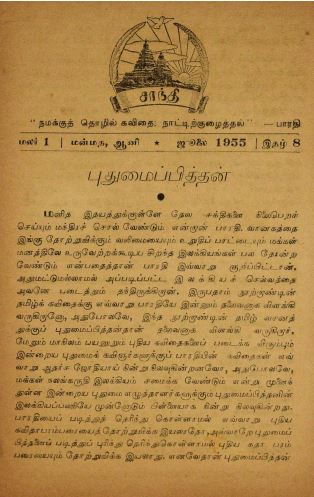 சாந்தி
" நமக்குத் தொழில் கவிதை; நாட்டிற்குழைத்தல்" —பாரதி
மலர் 1 | மன்மத, ஆனி ★ ஜூலை 1955 | இதழ் 8
புதுமைப்பித்தன்
மனித இதயத்துக்குள்ளே தேவ சக்திகளை நிலைபெறச்
செய்யும் மந்திரச் சொல் வேண்டும் என்றான் பாரதி. வானகத்தை
இங்கு தோற்றுவிக்கும் வலிமையையும் உறுதிப் பாட்டையும் மக்கள்
மனத்திலே உருவேற்றக்கூடிய சிறந்த இலக்கியங்கள் பல தோன்ற
வேண்டும் என்பதைத்தான் பாரதி இவ்வாறு குறிப்பிட்டான்.
அதுமட்டுமல்லாமல் அப்படிப்பட்ட இலக்கியச் செல்வத்தை
அவனே படைத்தும் தந்திருக்கிறான். இருபதாம் நூற்றாண்டின்
தமிழ்க் கவிதைக்கு எவ்வாறு பாரதியே இன்னும் தலைவனாக விளங்கி
வருகிறானோ, அதுபோலவே, இந்த நூற்றாண்டின் தமிழ் வசனத்
துக்குப் புதுமைப்பித்தன்தான் தலைவனாக விளங்கி வருகிறார்.
மேலும் மாகிலம் பயனுறும் புதிய கவிதைகளைப் படைக்க விரும்பும்
இன்றைய புதுமைக் கவிஞர்களுக்குப் பாரதியின் கவிதைகள் எவ்
வாறு ஆதர்ச ஜோதியாய் நின்று நிலவுகின்றனவோ, அதுபோலவே,
மக்கள் நலங்கருதி இலக்கியம் சமைக்க வேண்டும் என்று முனைந்
துள்ள இன்றைய புதுமை எழுத்தாளர்களுக்கும் புதுமைப்பித்தனின்
இலக்கியப்பணியே முன்னோடும் பிள்ளையாக நின்று நிலவுகின்றது.
பாரதியைப் படித்துத் தெரிந்து கொள்ளாமல் எவ்வாறு புதிய
கவிதாபரம்பரையைத் தோற்றுவிக்க இயலாதோ, அவ்வாறே புதுமைப்
பித்தனைப் படித்துப் புரிந்து தெரிந்துகொள்ளாமல் புதிய கதா பரம்
பரையையும் தோற்றுவிக்க இயலாது. எனவேதான் புதுமைப்பித்தன்